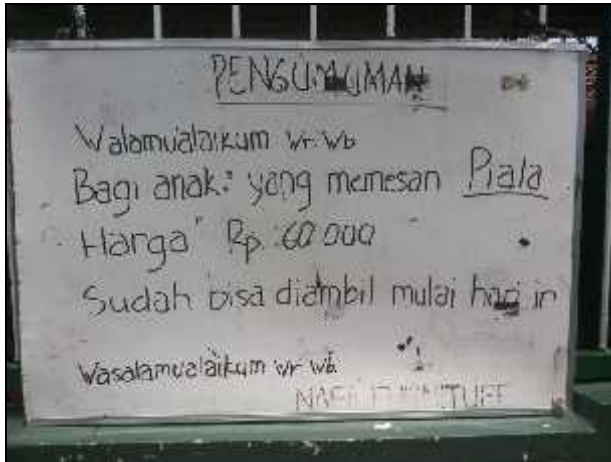 PENGUMUMAN
Walamualaikum wr. wb
Bagi anak² yang memesan Piala
Harga Rp. 60.000
Sudah bisa diambil mulai hari in
Wasalamualaikum wr wb